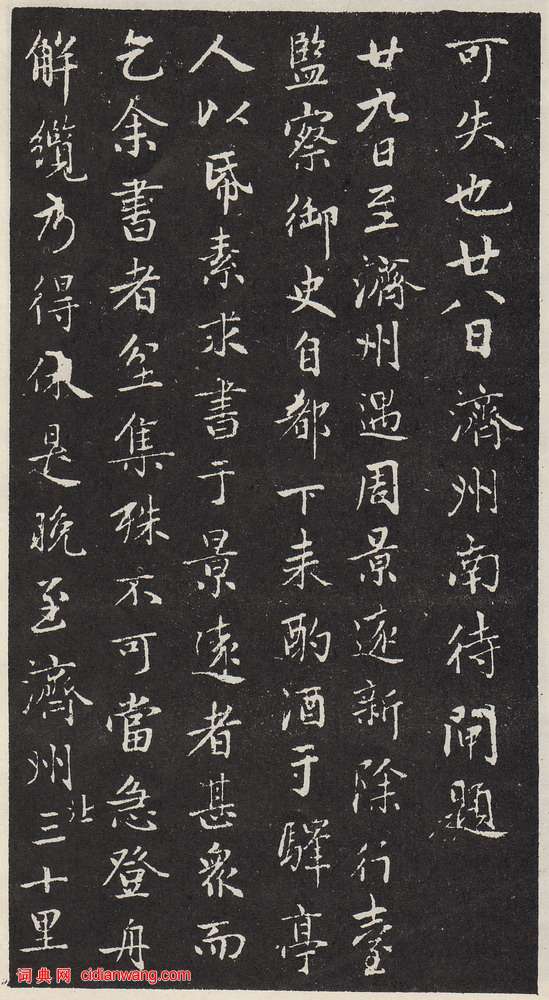 可失也廿八日濟州南待閘題
廿九日至濟州遇周景遠新除行臺
監察御史自都下來酌酒于驛亭
人以帋素求書于景遠者甚衆而
乞余書者坌集殊不可當急登舟
解纜乃得休是晚至濟州北三十里
词典网 cidianwang.com